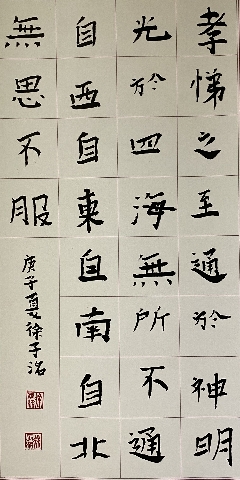 孝悌之至通於神明
光於四海無所不通
自西自東自南自北
無思不服
庚子夏徐子浩